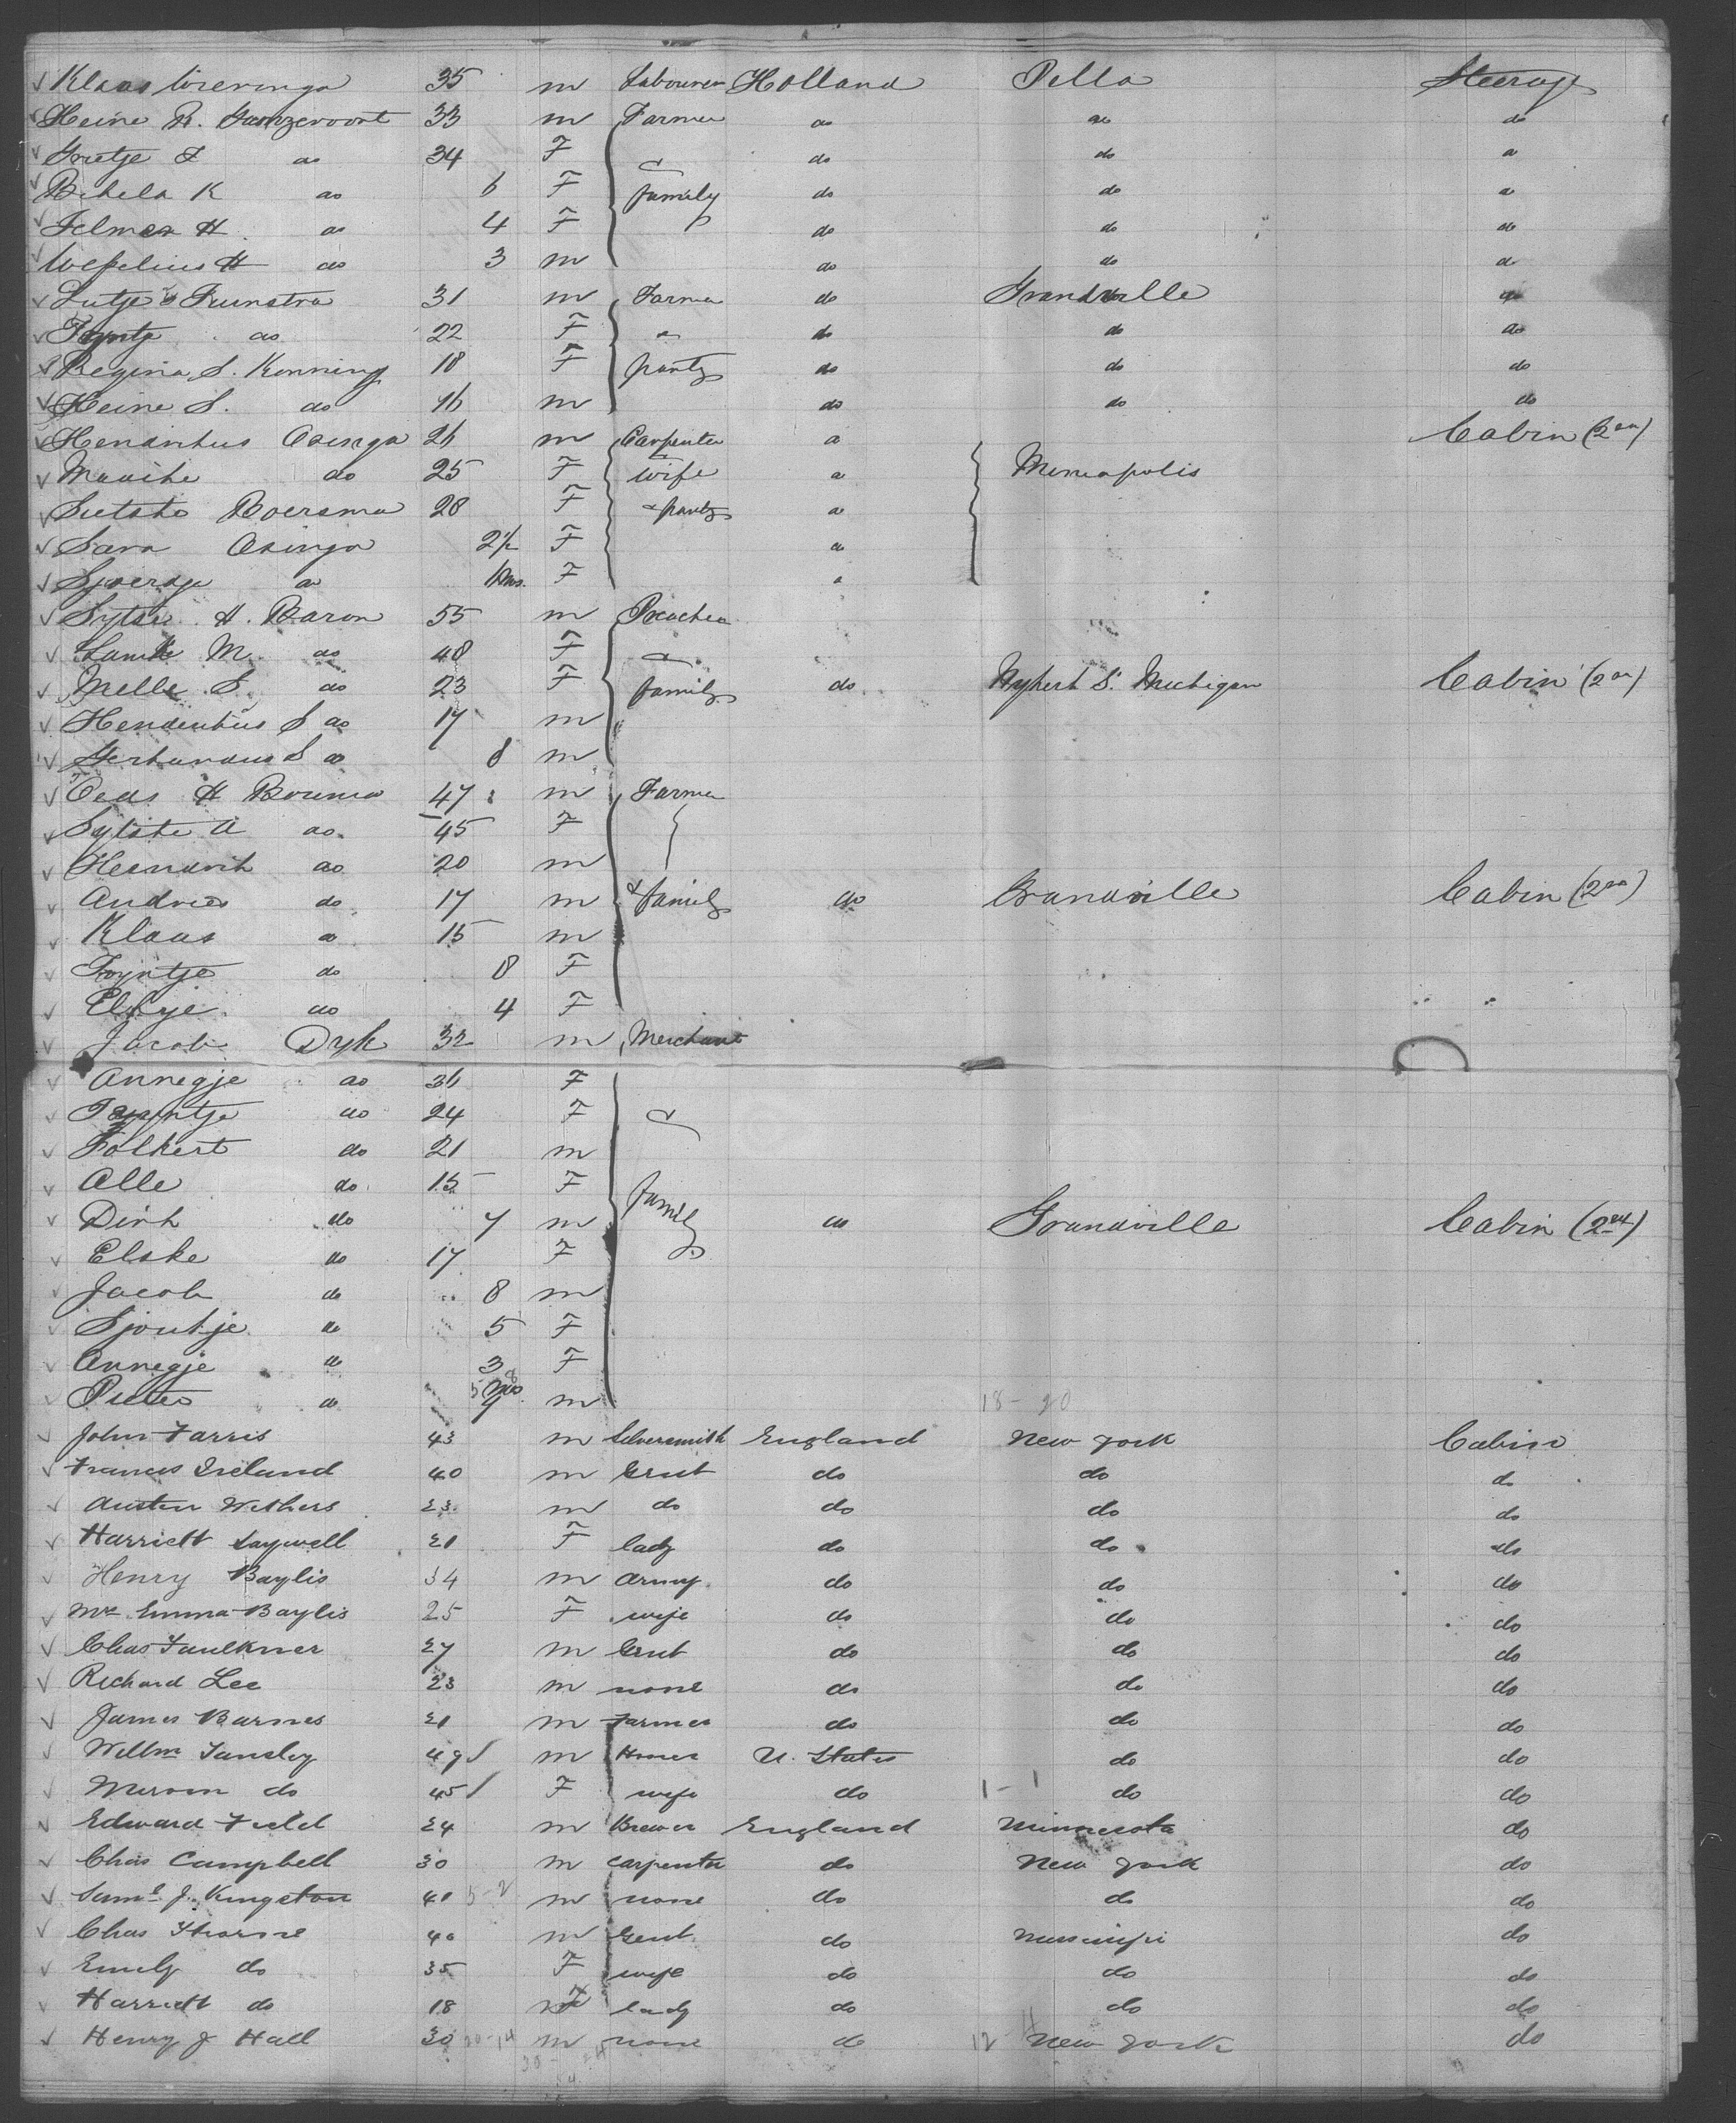 Klaas Wieringa 35 m Labourer Holland Pella Steerage
Heine R. Ganzevoort 33 m Farmer do do do
Grietje F do 34 F & do do do
Bekela K do 6 F family do do do
Jelmer H. do 4 F do do do
Wepelius H do 3 m do do do
Lutje Tuinstra 31 m Farmer do Grandville do
Tryntje do 22 F & do do do
Regina S. Konning 18 F party do do do
Heine S. do 16 m do do do
Henderikus Osinga 26 m Carpenter do Cabin (2nd)
Maaike do 25 F wife do Mineapolis
Sietske Boersma 28 F & party do
Sara Osinga 2½ F do
Sjoerdje do F do
Sytse H. Baron 55 m Preacher
M. do 48 F &
Melle S. do 23 F family do Nykerk S. Michigan Cabin (2nd)
Henderikus S do 17 m
Gerhardus S do 8 m
H Bouma 47 m Farmer
Sytske A do 45 F
Hendrik do 20 m
Andries do 17 m & family do Grandville Cabin (2nd)
Klaas do 15 m
Tryntje do 8 F
Elskje do 4 F
Jacob Dyk 32 m Merchant
Annegje do 36 F
Tryntje do 24 F &
Folkert do 21 m
Alle do 15 F
Dirk do 7 m family do Grandville Cabin (2nd)
Elske do 17 F
Jacob do 8 m
Sjoutje do 5 F
Annegje do 3 F
Pieter do 9 mos m 18-20
John Farris 43 m Silversmith England New York Cabin
Francis Ireland 40 m Gent do do do
Austin Withers 23 m do do do do
Harriett Saywell 21 F lady do do do
Henry Baylis 34 m army do do do
Mrs Emma Baylis 25 F wife do do do
Chas Faulkner 27 m Gent do do do
Richard Lee 23 m none do do do
James Barnes 21 m Farmer do do do
Willm Tansley 49 m U. States do do
do 45 F wife do 1-1 do do
Edward Field 24 m Brewer England Minnesota do
Chas Campbell 30 m Carpenter do New York do
Saml J. Kingston 40 5-2 m none do do do
Chas Thorne 40 m Gent do Mississipi do
Emily do 35 F wife do do do
Harriett do 18 F lady do do do
Henry J Hall 30 20-14 m none do 12-11 New York do